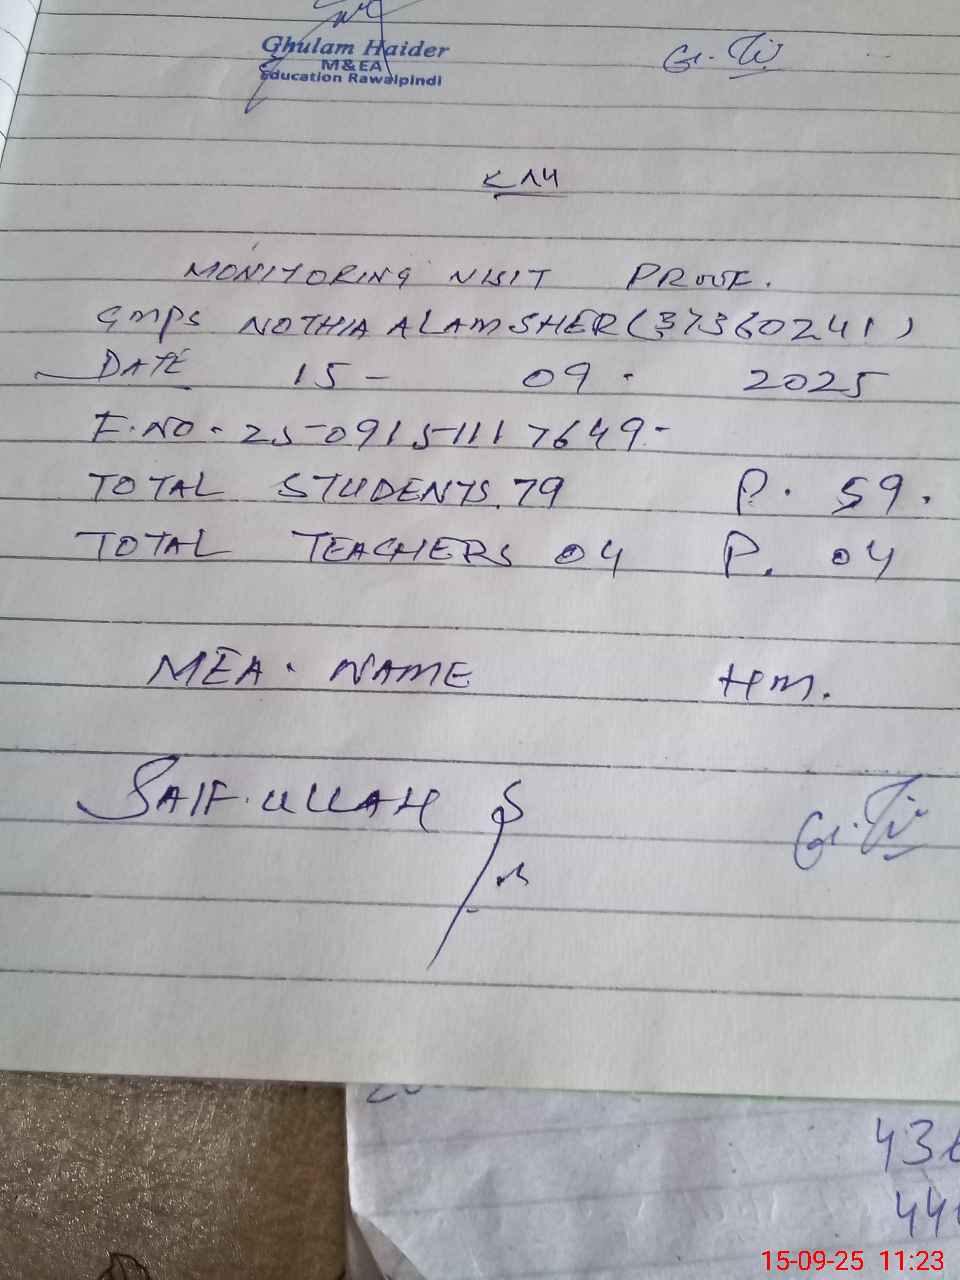 Ghulam Haider
M&EA
Education Rawalpindi
MONITORING VISIT PROOF.
GMPS NOTHIA ALAMSHER (37360241)
DATE 15 - 09 - 2025
F.NO. 25-0915-1117649-
TOTAL STUDENTS. 79 P. 59.
TOTAL TEACHERS 04 P. 04
MEA. NAME HM.
SAIF.ULLAH
436
15-09-25 11:23